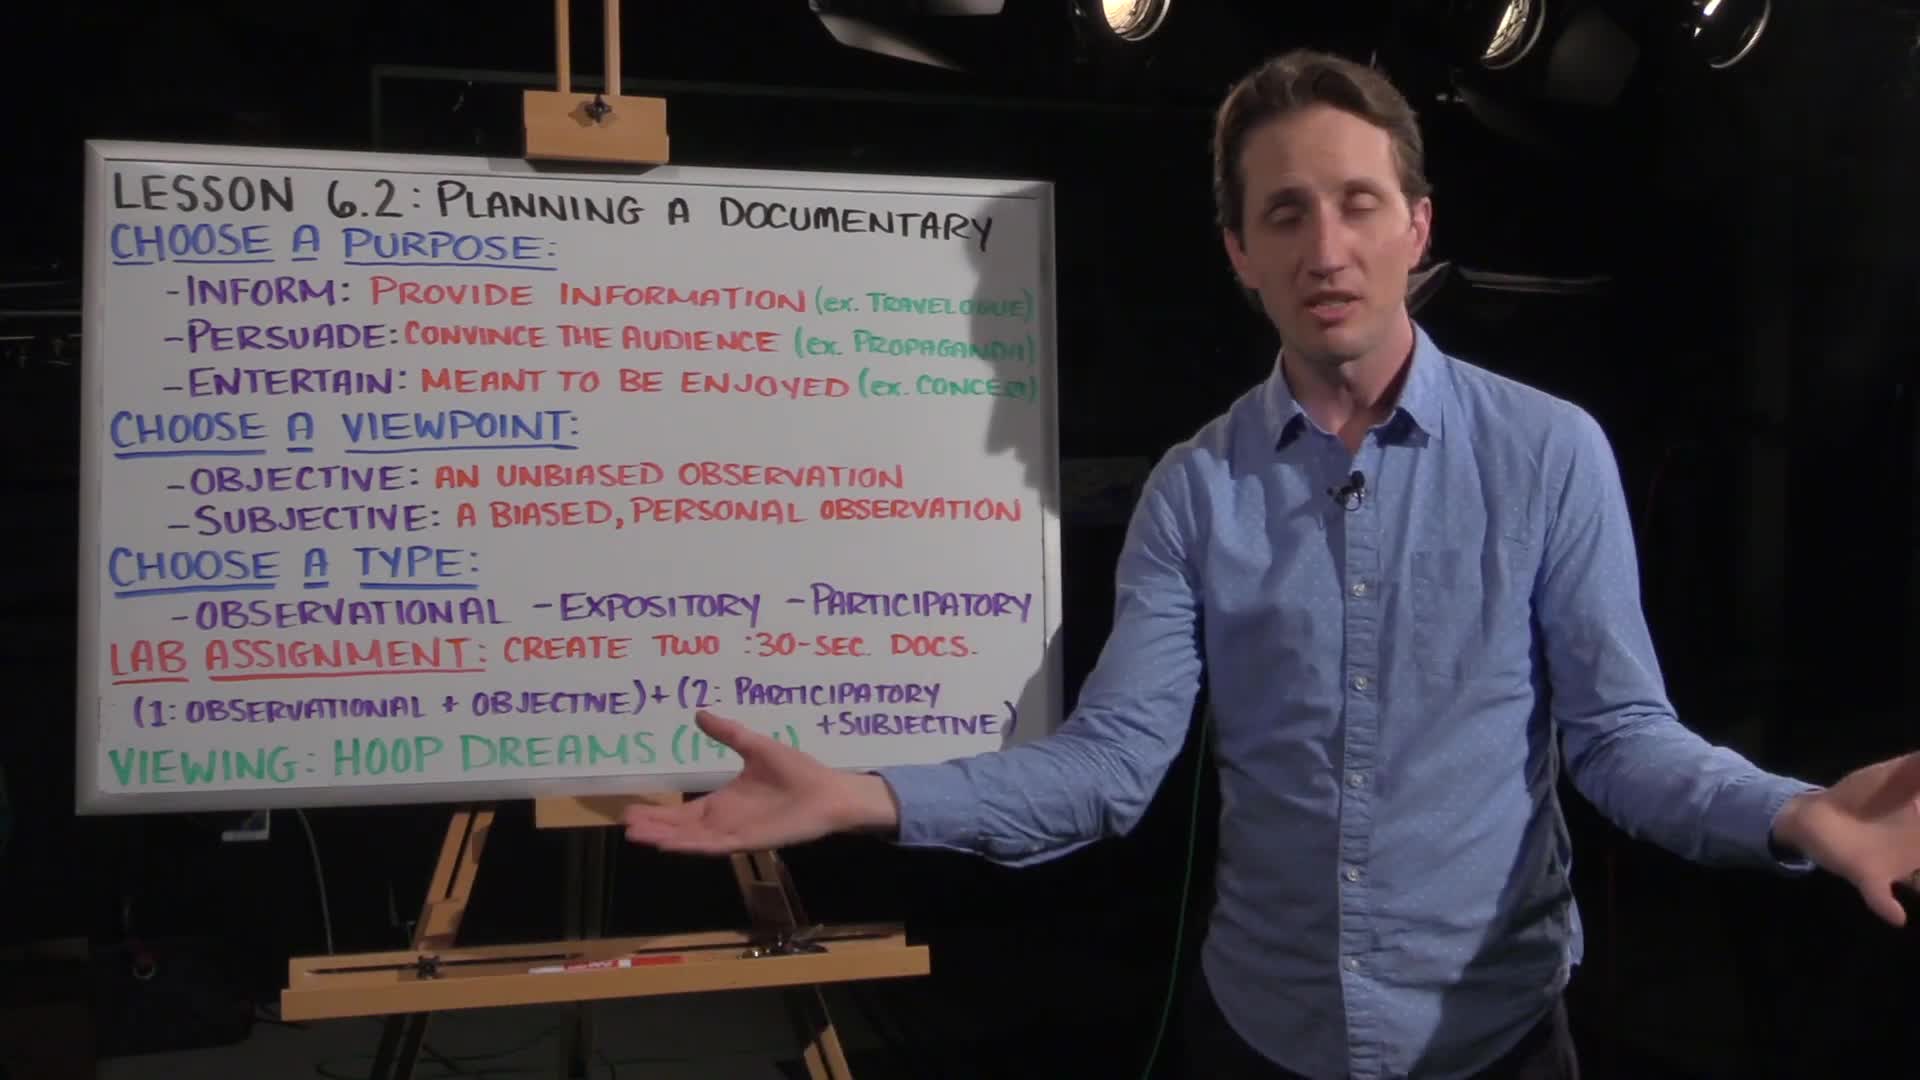 LESSON 6.2: PLANNING A DOCUMENTARY
CHOOSE A PURPOSE:
-INFORM: PROVIDE INFORMATION (ex. TRAVELOGUE)
-PERSUADE: CONVINCE THE AUDIENCE (ex. PROPAGANDA)
-ENTERTAIN: MEANT TO BE ENJOYED (ex. CONCERT)
CHOOSE A VIEWPOINT:
-OBJECTIVE: AN UNBIASED OBSERVATION
-SUBJECTIVE: A BIASED, PERSONAL OBSERVATION
CHOOSE A TYPE:
-OBSERVATIONAL -EXPOSITORY -PARTICIPATORY
LAB ASSIGNMENT: CREATE TWO :30-SEC. DOCS.
(1: OBSERVATIONAL + OBJECTIVE) + (2: PARTICIPATORY
+SUBJECTIVE)
VIEWING: HOOP DREAMS